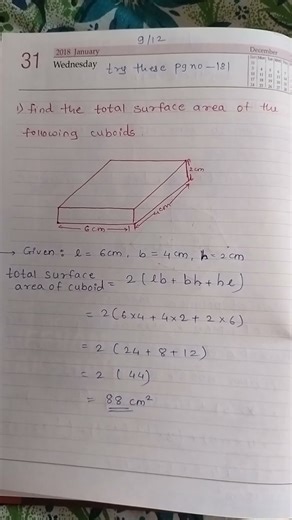 9/12
31
2018 January
Wednesday
December
try these pg no - 181
1) find the total surface area of the
following cuboids
2cm
4cm
6cm
→ Given : l = 6cm, b = 4cm, h = 2cm
total surface area of cuboid = 2 (lb + bh + hl)
= 2(6×4 + 4×2 + 2×6)
= 2 (24 + 8 + 12)
= 2 (44)
= 88 cm²